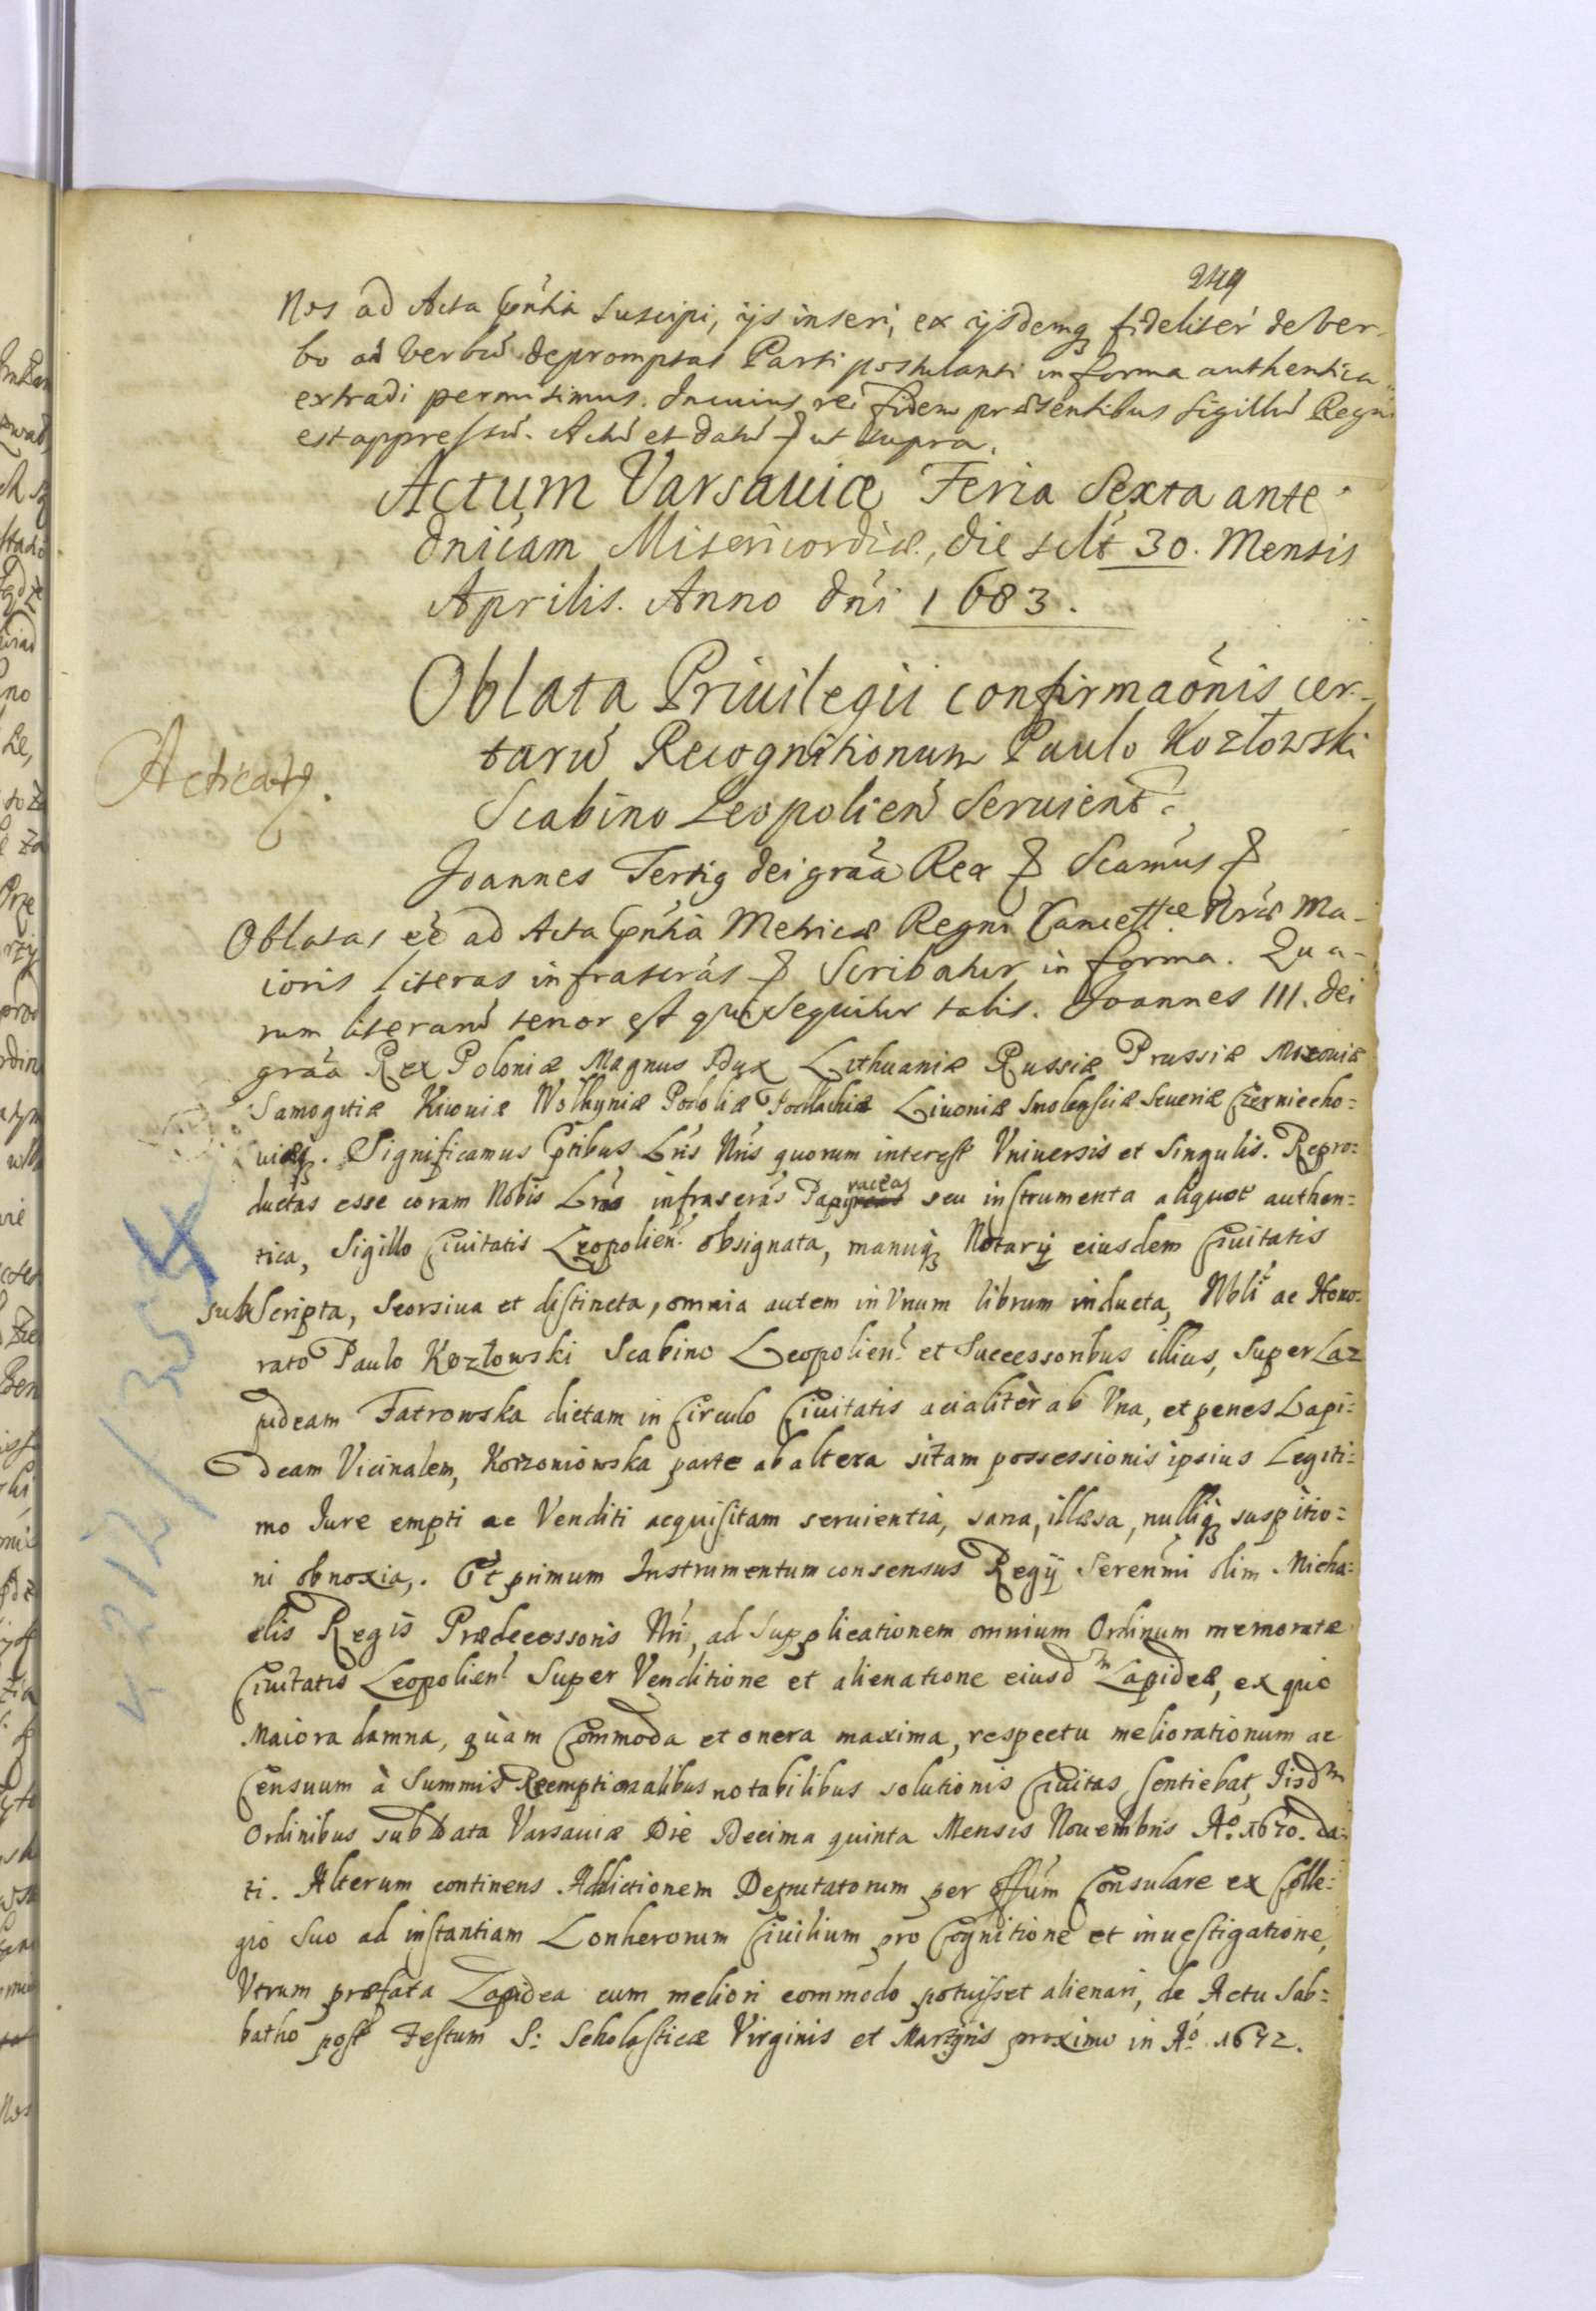 249
Nos ad Acta pn̄tia suscipi, ijs inseri, ex ijsdemq fideliter de ver-
bo ad verbū depromptas Parti postulanti in forma authentica
extradi permisimus. In cuius rei fidem præsentibus Sigillū Regni
est appressū. Actū et datū ut supra.
Actum Varsauiæ Feria Sexta ante
dnicam Misericordiæ, die sclt 30. Mensis
Aprilis. Anno dni 1683.
Oblata Priuilegii confirmaonis cer-
tarū Recognitionum Paulo Kozłowski
Scabino Leopolien Seruient.
Acticat.
Joannes Tertig dei graā Rex Scamus
Oblatas eē ad Acta pn̄tia Metricæ Regni Cancellæ Nræ Ma-
ioris literas infrascras Scribatur in forma. Qua-
rum literarū tenor est qui sequitur talis. Joannes III. dei
graā Rex Poloniæ Magnus Dux Lithuaniæ Russiæ Prussiæ Mazouiæ
Samogitiæ Kiouiæ Wolhyniæ Podoliæ Podlachiæ Liuoniæ Smolensciæ Seueriæ Czerniecho=
uiæq. Significamus Pntibus Lris Nris quorum interest Vniuersis et Singulis. Repro=
ductas esse coram Nobis Lras infrascras Papyraceas seu instrumenta aliquot authen=
tica, Sigillo Ciuitatis Leopolien. obsignata, manuq Notarij eiusdem Ciuitatis
subScripta, Seorsiua et distincta, omnia autem in Vnum librum inducta, Nbli ac Hono=
rato Paulo Kozłowski Scabino Leopolien. et Successoribus illius, Super Laz
pideam Fatrowska dictam in Circulo Ciuitatis acialitèr ab Vna, et penes Lapi=
deam Vicinalem, Korzoniowska parte ab altera sitam possessionis ipsius Legiti=
mo Iure empti ac Venditi acquisitam seruientia, sana, illæsa, nulliq suspitio=
ni obnoxia,. Et primum Instrumentum consensus Regij Serenmi olim Micha=
elis Regis Prædecessoris Nri, ad Supplicationem omnium Ordinum memoratæ
Ciuitatis Leopolien Super Venditione et alienatione eiusdm Lapideæ, ex quo
Maiora damna, quàm Commoda et onera maxima, respectu meliorationum ac
Censuum à Summis Reemptionalibus notabilibus solutionis Ciuitas sentiebat, Iisdm
Ordinibus sub Data Varsauiæ Die Decima quinta Mensis Nouembris Ao. 1670. da=
ti. Alterum continens Addictionem Deputatorum per offum Consulare ex Colle=
gio Suo ad instantiam Lonherorum Ciuilium pro Cognitione et inuestigatione,
Vtrum præfata Lapidea cum meliori commodo potuisset alienari, de Actu Sab=
batho post Festum S: Scholasticæ Virginis et Martyris proximo in Ao 1672.